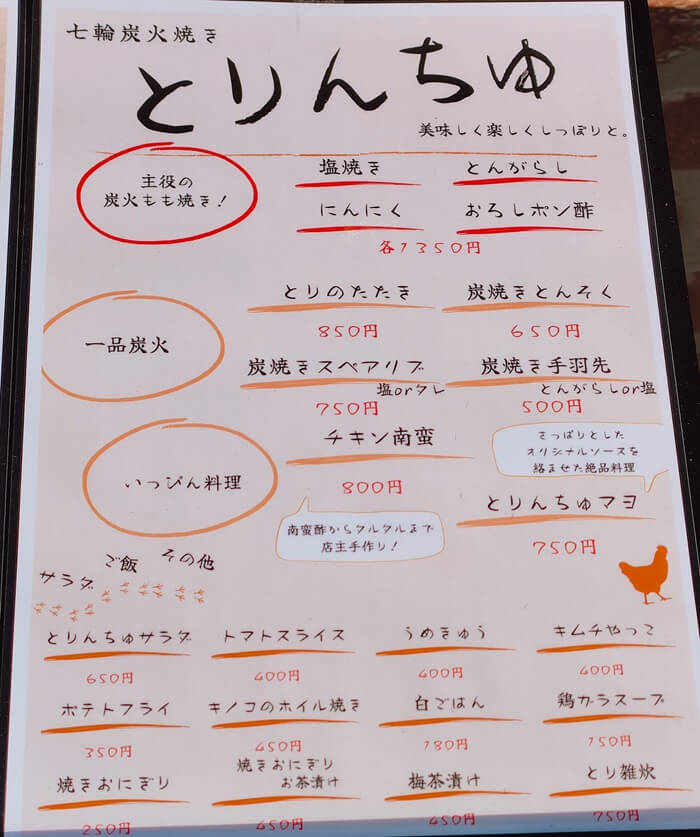 七輪炭火焼き
とりんちゅ
美味しく楽しくしっぽりと。
主役の
炭火もも焼き!
塩焼き とんがらし
にんにく おろしポン酢
各1350円
一品炭火
とりのたたき 炭焼きとんそく
850円 650円
炭焼きスペアリブ 炭焼き手羽先
塩orタレ とんがらしor塩
750円 500円
いっぴん料理
チキン南蛮
800円
南蛮酢からタルタルまで
店主手作り!
さっぱりとした
オリジナルソースを
絡ませた絶品料理
とりんちゅマヨ
750円
サラダ ご飯 その他
とりんちゅサラダ トマトスライス うめきゅう キムチやっこ
650円 400円 400円 400円
ポテトフライ キノコのホイル焼き 白ごはん 鶏ガラスープ
350円 450円 180円 150円
焼きおにぎり 焼きおにぎり 梅茶漬け とり雑炊
お茶漬け
250円 450円 450円 750円